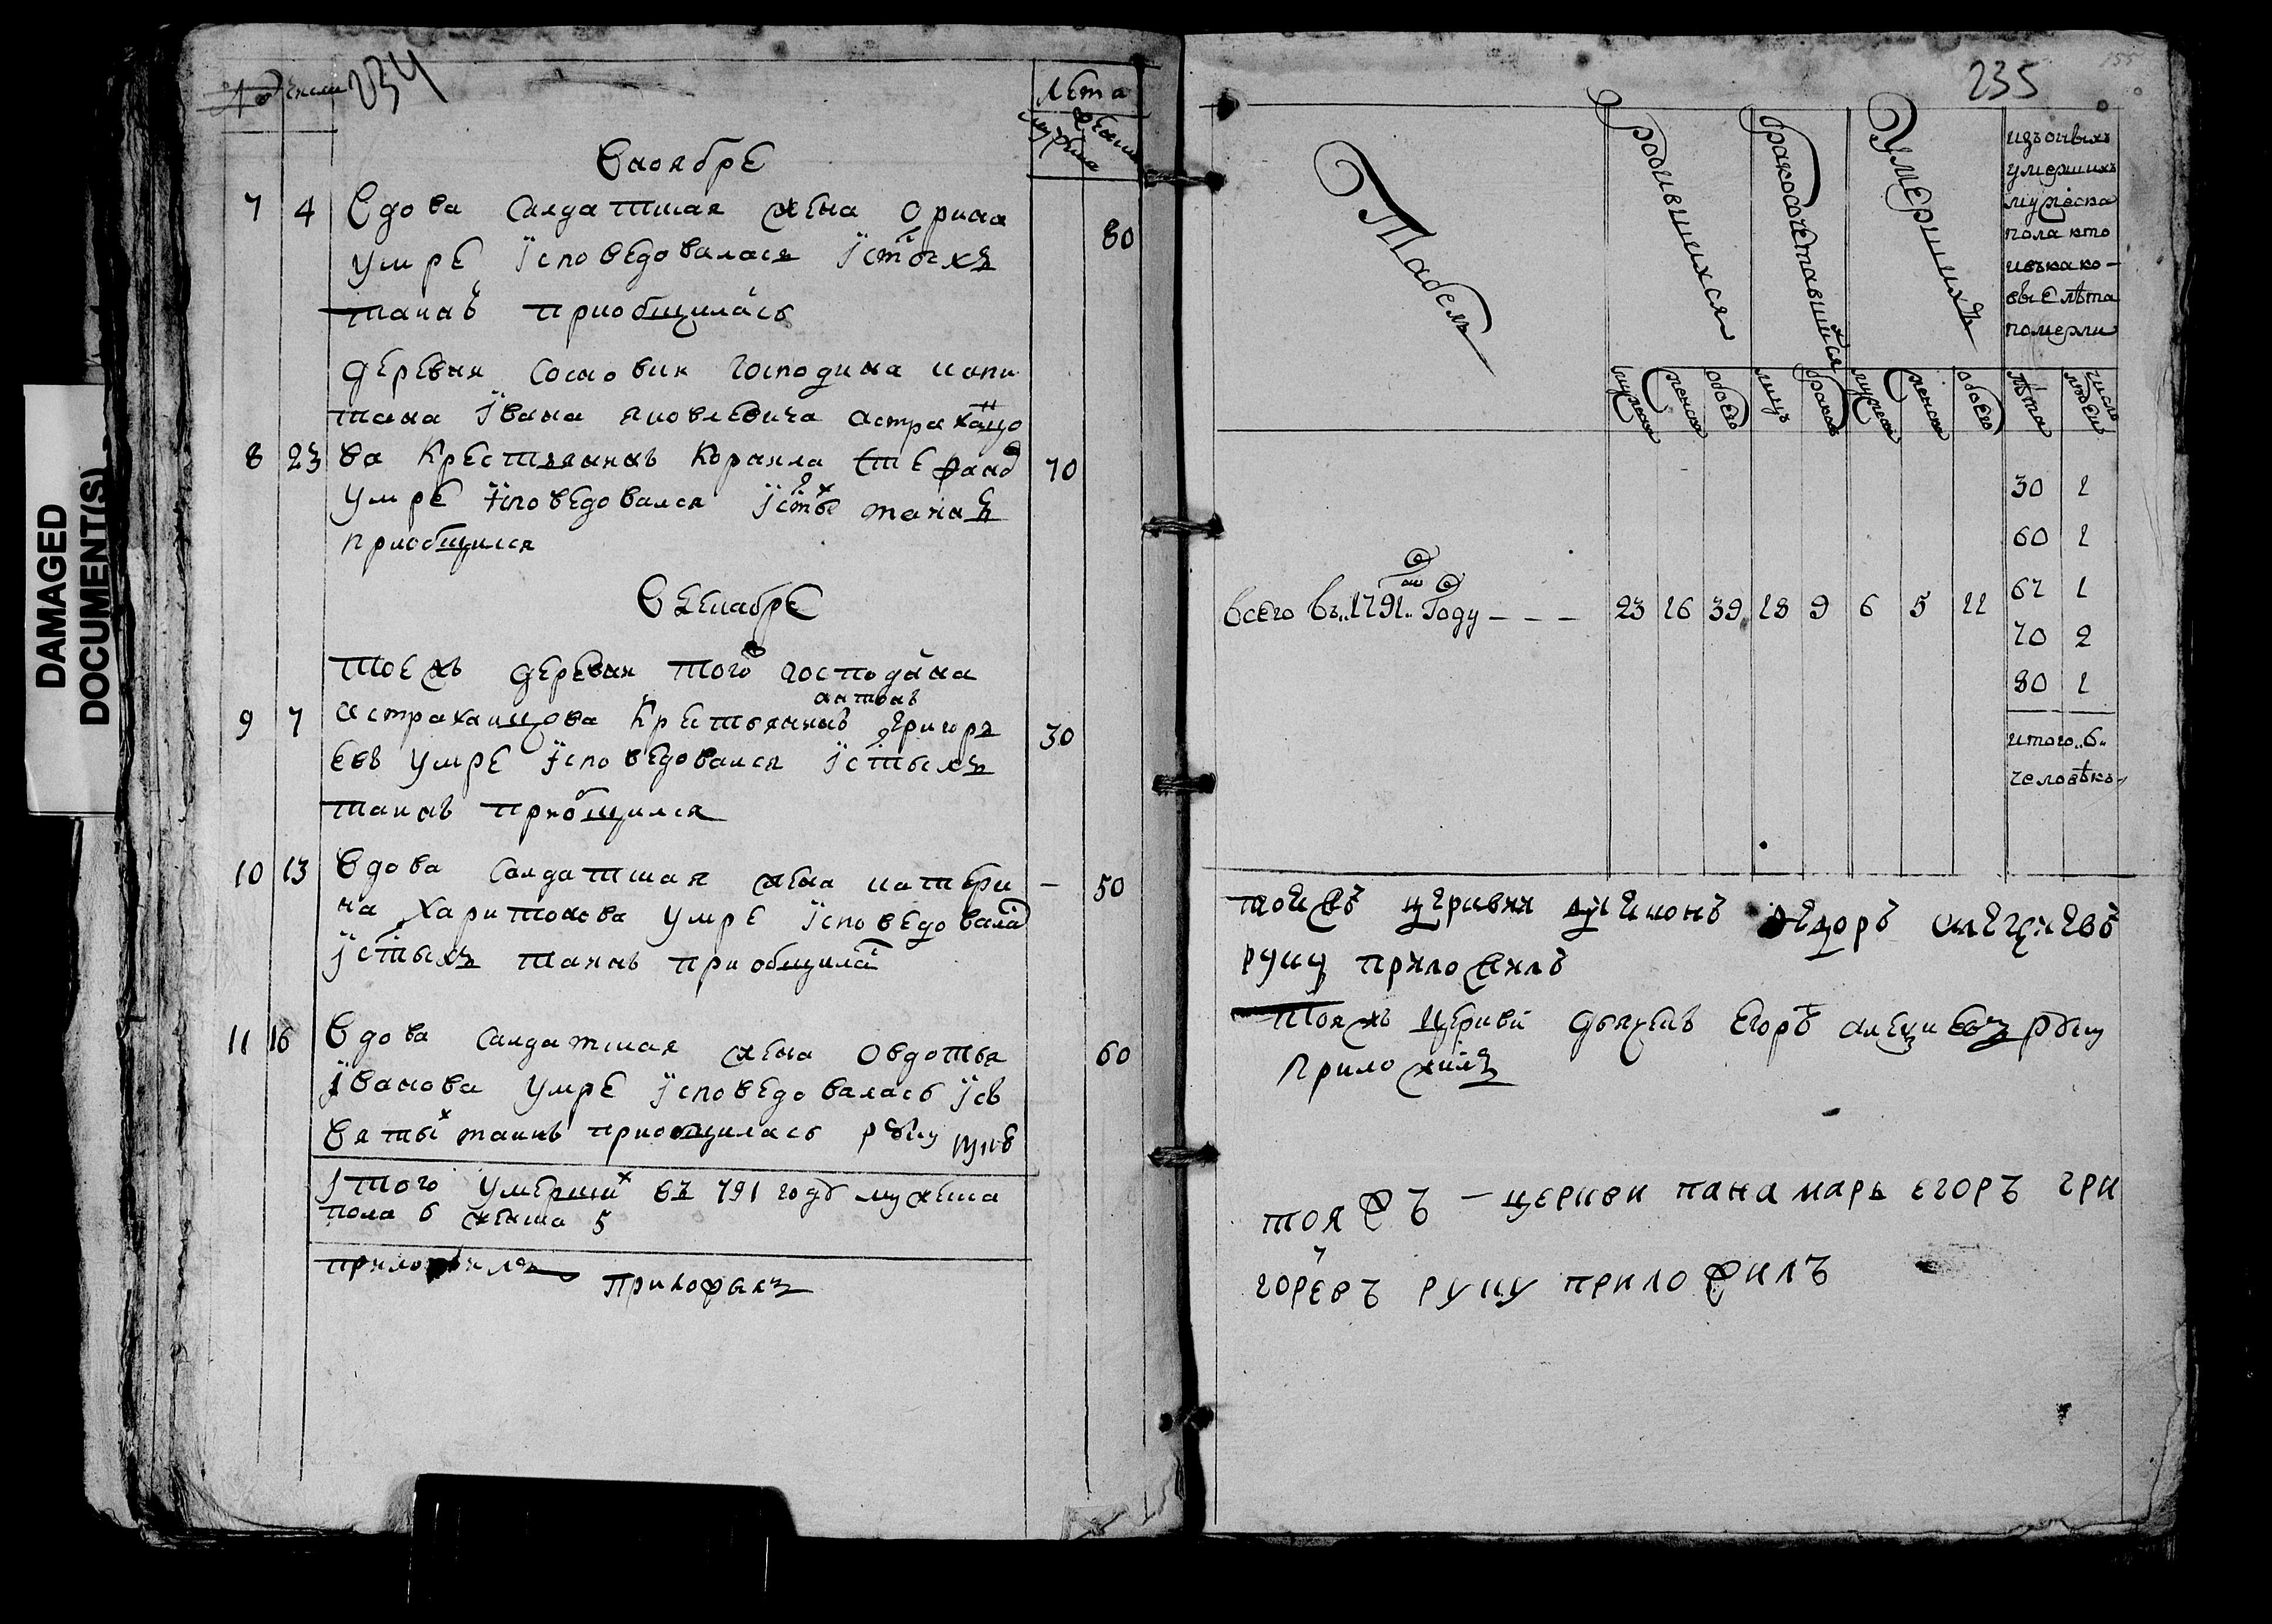 DAMAGED
DOCUMENT(S)
234
числа
Лета
мужска женска
В ноябре
7 4 Вдова салдатская жена Орина 80
умре исповедовалася и стыхъ
таинъ приобщилась
деревни господина капи
тана Ивана Яковлевича Астраханцо
8 23 ва крестьянинъ 70
умре исповедовался и стых таинъ
приобщился
В декабре
тоежъ деревни того господина
антонъ
9 7 Астраханцова крестьянинъ Григорь 30
евъ умре исповедовался и стыхъ
таинъ приобщился
10 13 Вдова салдатская жена катери – 50
на Харитонова умре исповедовала
и стыхъ таинъ приобщила
11 16 Вдова салдатская жена Овдотья 60
Иванова умре исповедовалась и св
вятых таинъ приобщилась
Итого умерших въ 791 году мужеска
пола 6 женска 5
приложилъ
235
155
Табель
родившихся
бракосочетавшийся
Умершихъ
изъ оныхъ
умершихъ
мужеска
пола кто
и въ како-
вые лѣта
померли
мужеска женска обоего лицъ браковъ мужеска женска обоего лѣта число людей
30 1
60 1
Всего въ 1791 году – – – 23 16 39 18 9 6 5 11 67 1
70 2
80 1
итого 6
человѣкъ
тоежъ церкви диаконъ Федоръ Алексѣевъ
руку приложилъ
тояжъ церкви дьячекъ Егоръ Алексиевъ руку
приложилъ
тояжъ – церкви панамарь егоръ гри
горевъ руку приложилъ